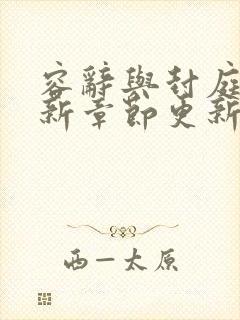 容辭與封庭
新章節更新
西—太原